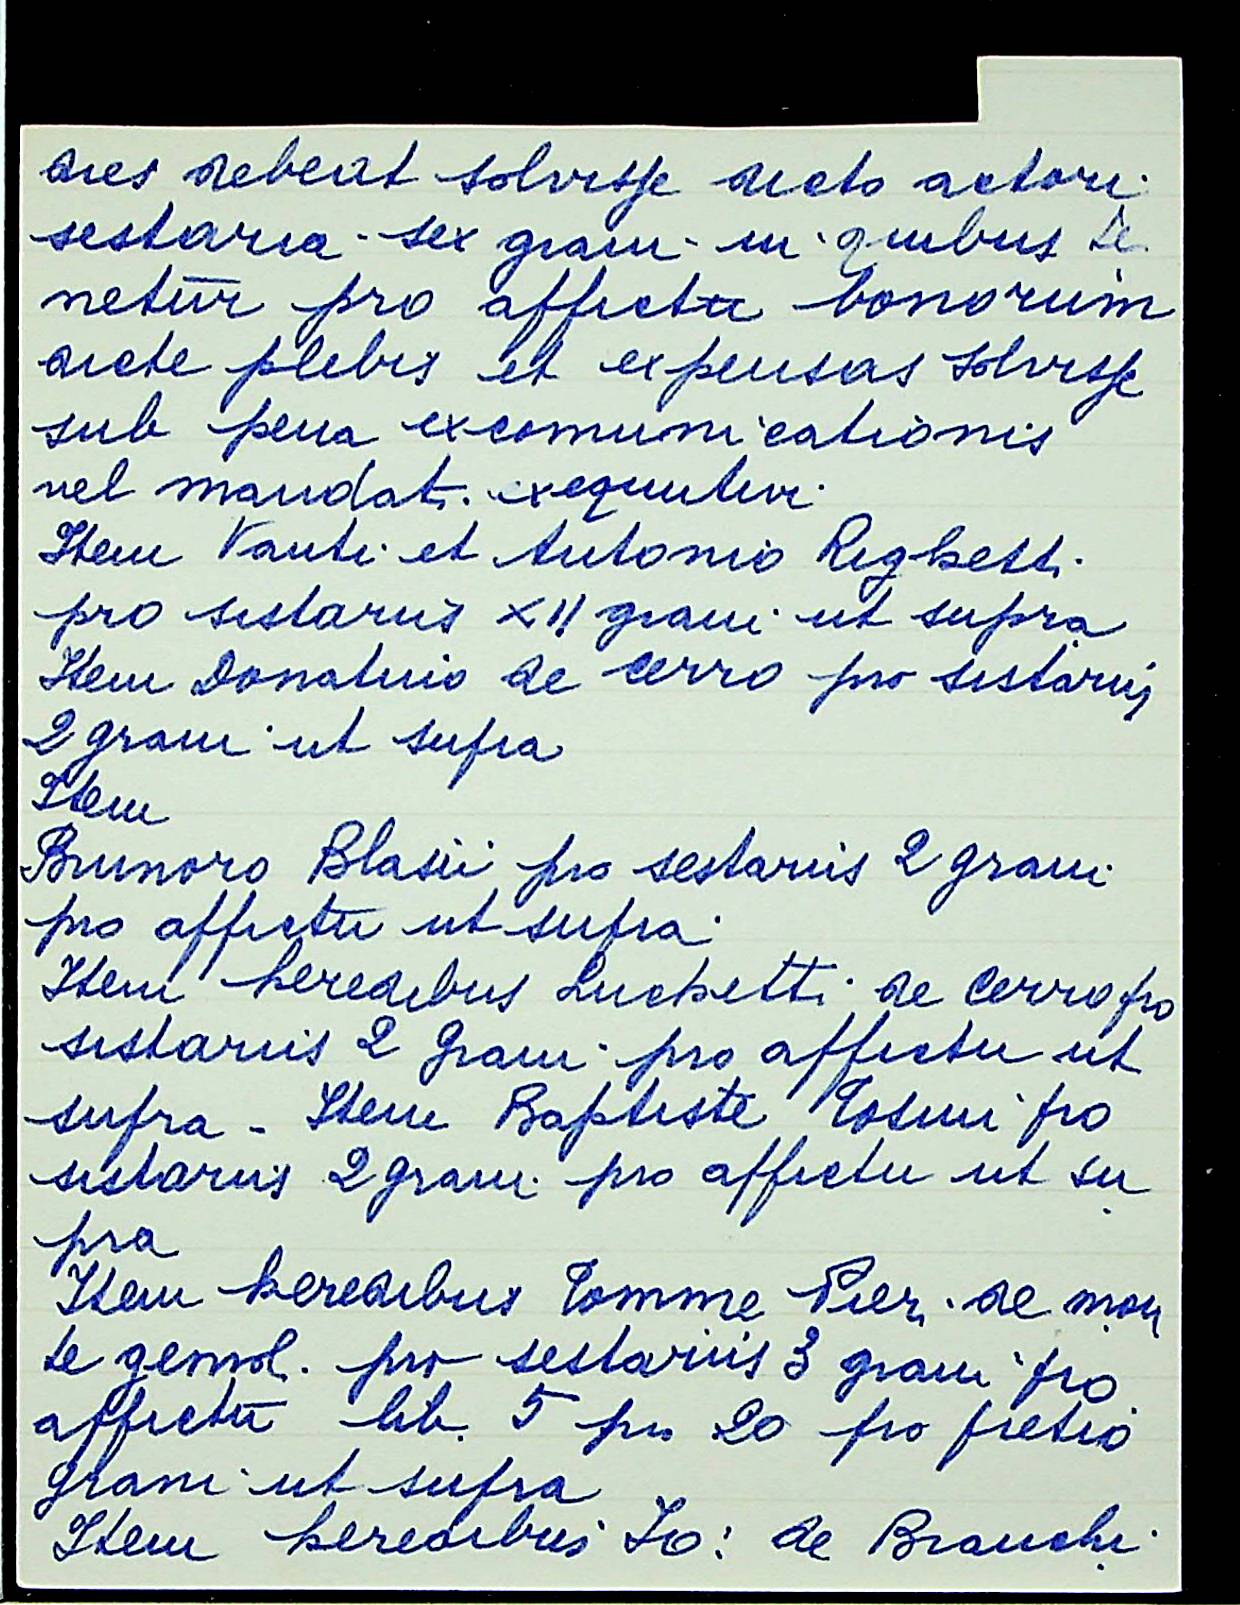 dies debeat solvisse dicto actori
sestaria sex grani in quibus te
netur pro affictu bonorum
dicte plebis et expensas solvisse
sub pena excomunicationis
vel mandat. exequutivi
Item Vanti et Antonio Righetti
pro sistariis XII grani ut supra
Item Donatino de Cerro pro sistariis
2 grani ut supra
Item
Brunoro Blasii pro sestariis 2 grani
pro affictu ut supra
Item heredibus Luchetti de Cerro pro
sistariis 2 grani pro affictu ut
supra - Item Baptiste Tosini pro
sistariis 2 grani pro affictu ut su
pra
Item heredibus Tomme Pier. de mon
te gemol. pro sestariis 3 grani pro
affictu lib. 5 pis 20 pro pretio
grani ut supra
Item heredibus Io: de Branchi